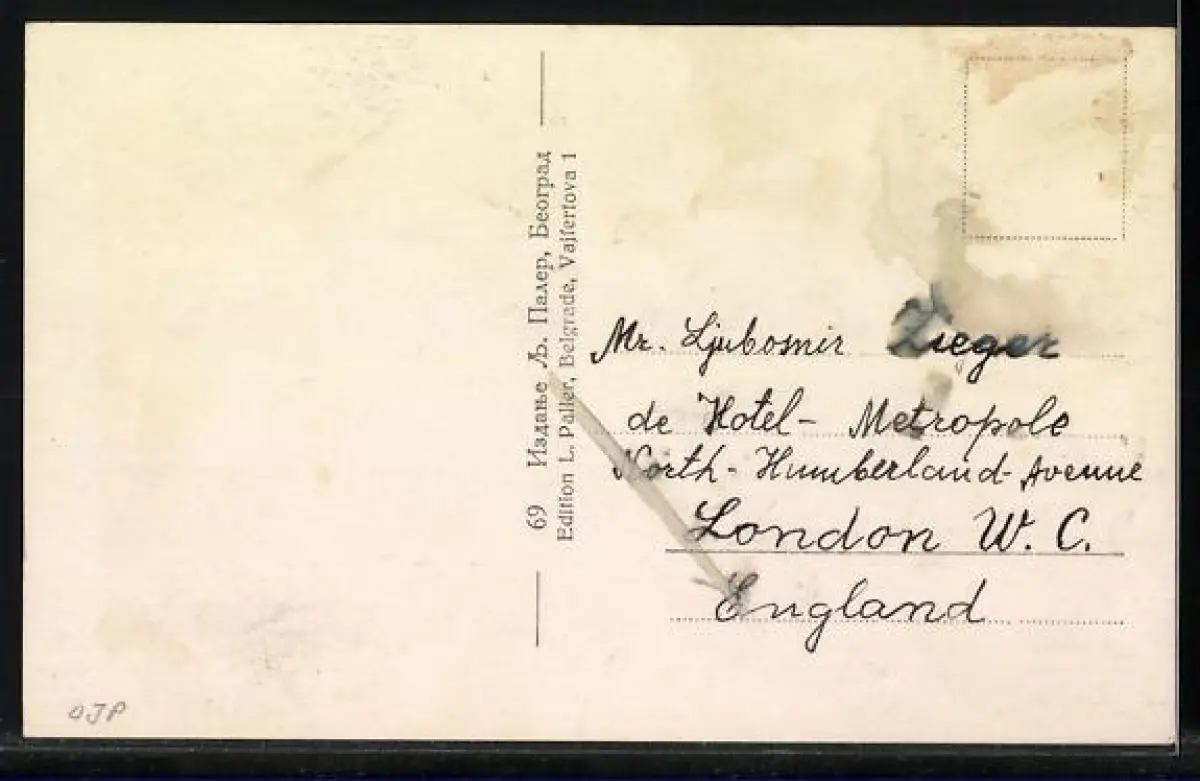 69 Издање Љ. Палер, Београд
Edition L. Paller, Belgrade, Vajfertova 1
Mr. Ljubomir Zieger
de Hotel- Metropole
North- Humberland- Avenue
London W. C.
England